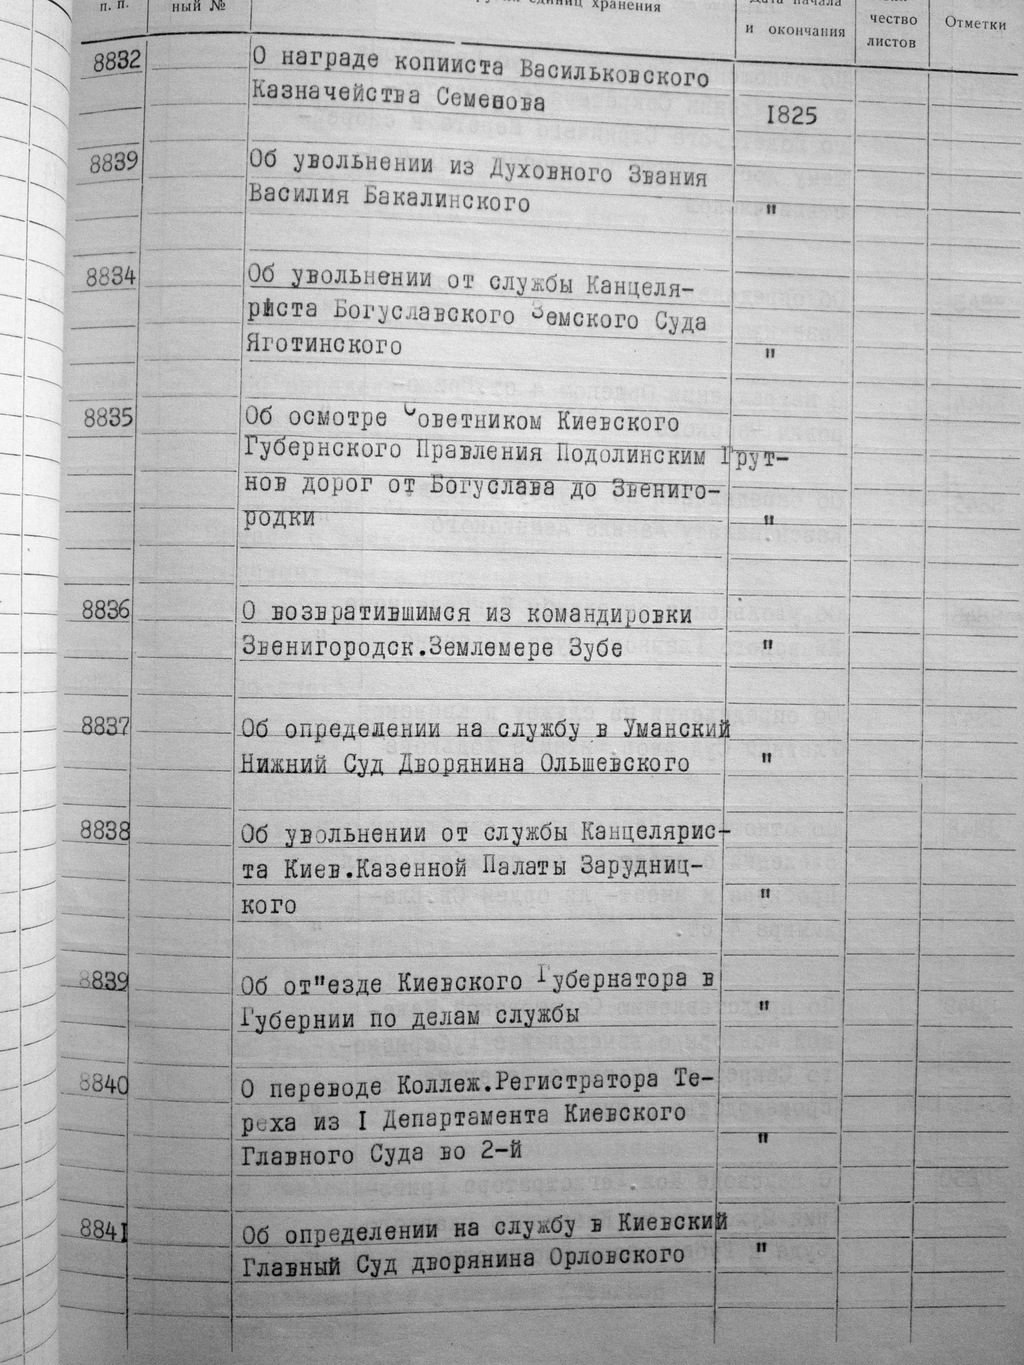 п. п.
ный №
единиц хранения
Дата начала
и окончания
чество
листов
Отметки
8832
О награде копииста Васильковского
Казначейства Семенова
1825
8839
Об увольнении из Духовного Звания
Василия Бакалинского
"
8834
Об увольнении от службы Канцеля-
риста Богуславского Земского Суда
Яготинского
"
8835
Об осмотре Советником Киевского
Губернского Правления Подолинским Грут-
нов дорог от Богуслава до Звениго-
родки
"
8836
О возвратившимся из командировки
Звенигородск.Землемере Зубе
"
8837
Об определении на службу в Уманский
Нижний Суд Дворянина Ольшевского
"
8838
Об увольнении от службы Канцелярис-
та Киев.Казенной Палаты Зарудниц-
кого
"
8839
Об от"езде Киевского Губернатора в
Губернии по делам службы
"
8840
О переводе Коллеж.Регистратора Те-
реха из I Департамента Киевского
Главного Суда во 2-й
"
8841
Об определении на службу в Киевский
Главный Суд дворянина Орловского
"